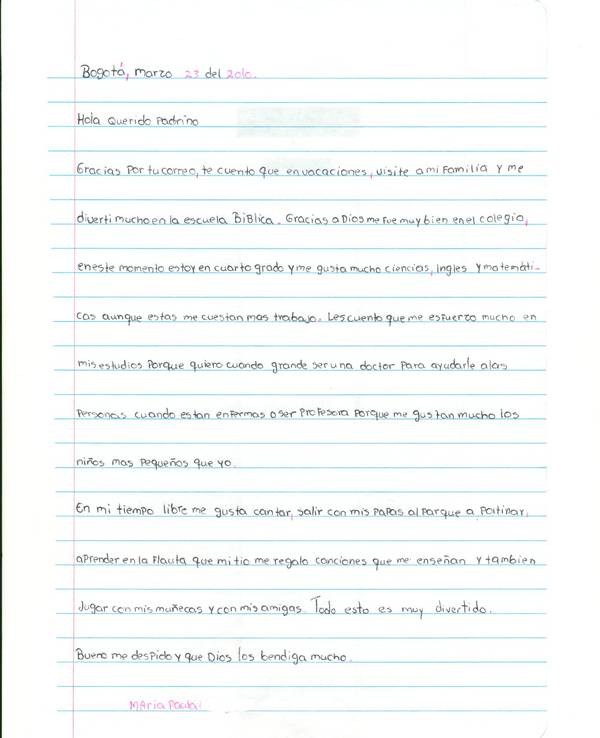 Bogotá, marzo 23 del 2010.
Hola Querido Padrino
Gracias Por tu correo, te cuento que en vacaciones, visite a mi Familia y me
diverti mucho en la escuela BiBlica. Gracias a Dios me fue muy bien en el colegio,
en este momento estoy en cuarto grado y me gusta mucho ciencias, Ingles y matemáti-
cas aunque estas me cuestan mas trabajo. Les cuento que me esfuerzo mucho en
mis estudios Porque quiero cuando grande ser una doctor Para ayudarle a las
Personas cuando estan enfermas o ser Profesora Porque me gustan mucho los
niños mas Pequeños que yo.
En mi tiempo libre me gusta cantar, salir con mis PaPas al Parque a Patinar,
aPrender en la Flauta que mi tio me regalo canciones que me enseñan y tambien
Jugar con mis muñecas y con mis amigas. Todo esto es muy divertido.
Bueno me desPido y que Dios los bendiga mucho.
MAria Paula